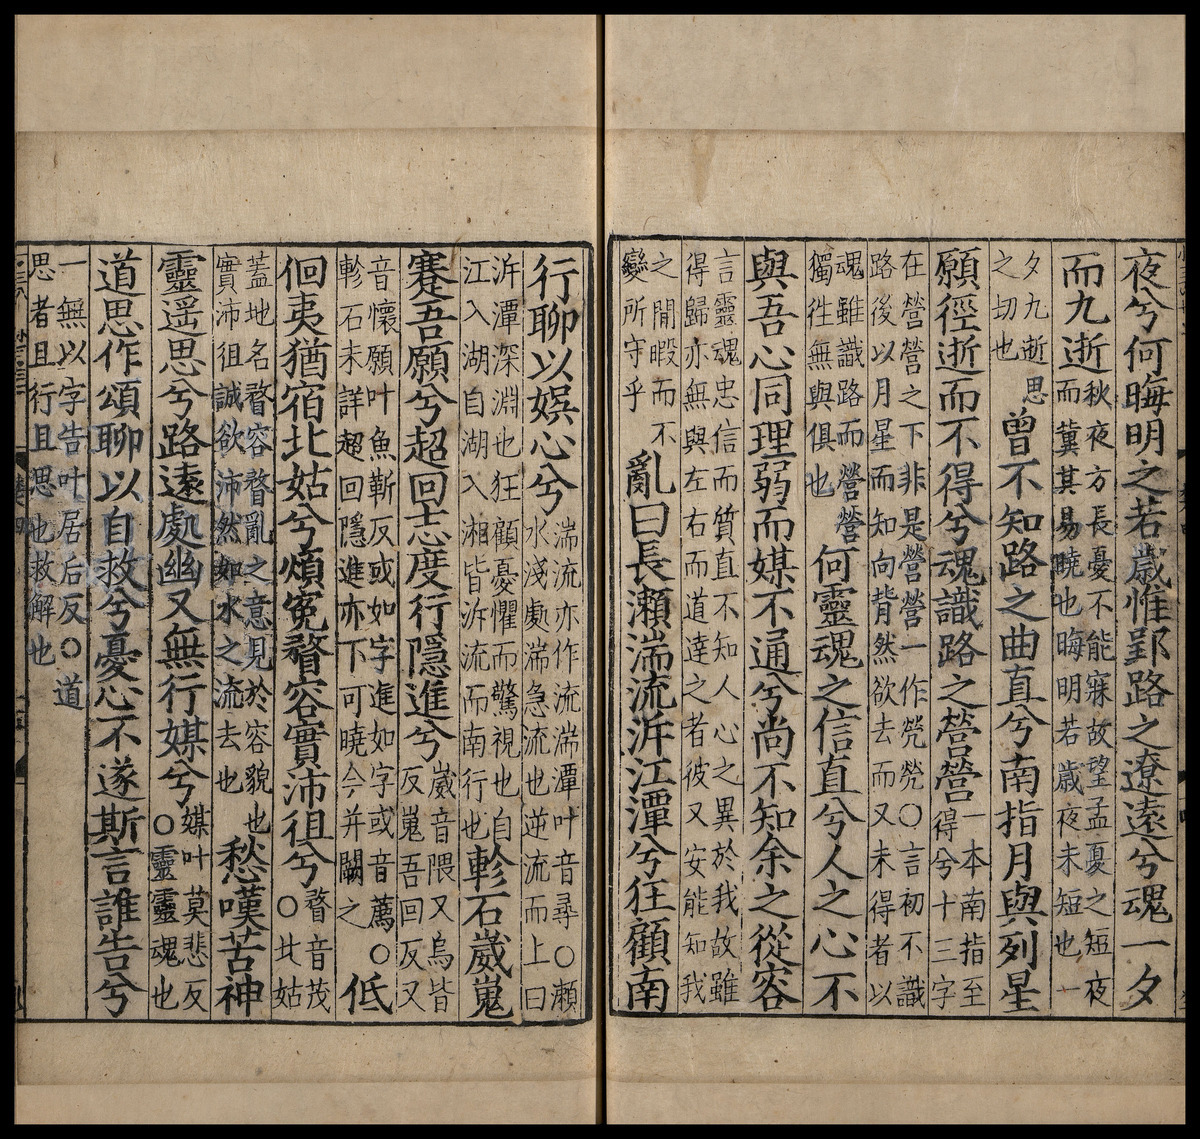 夜兮何晦明之若歲惟郢路之遼遠兮魂一夕
而九逝
秋夜方長憂不能寐故望孟夏之短夜
而冀其易曉也晦明若歲夜未短也一
夕九逝思
之切也
曾不知路之曲直兮南指月與列星
願徑逝而不得兮魂識路之營營
一本南指至
得兮十三字
在營營之下非是營營一作煢煢○言初不識
路後以月星而知向背然欲去而又未得者以
魂雖識路而營營
獨徃無與俱也
何靈魂之信直兮人之心不
與吾心同理弱而媒不通兮尚不知余之從容
言靈魂忠信而質直不知人心之異於我故雖
得歸亦無與左右而道達之者彼又安能知我
之閒暇而不
變所守乎
亂曰長瀨湍流泝江潭兮狂顧南
行聊以娛心兮
湍流亦作流湍潭叶音尋○瀨
水淺處湍急流也逆流而上曰
泝潭深淵也狂顧憂懼而驚視也自
江入湖自湖入湘皆泝流而南行也
軫石崴嵬
蹇吾願兮超回志度行隱進兮
崴音隈又烏皆
反嵬吾回反又
音懷願叶魚靳反或如字進如字或音薦○
軫石未詳超回隱進亦下可曉今并闕之
低
佪夷猶宿北姑兮煩冤瞀容實沛徂兮
瞀音茂
○北姑
蓋地名瞀容瞀亂之意見於容貌也
實沛徂誠欲沛然如水之流去也
愁嘆苦神
靈遥思兮路遠處幽又無行媒兮
媒叶莫悲反
○靈靈魂也
道思作頌聊以自救兮憂心不遂斯言誰告兮
一無以字告叶居后反○道
思者且行且思也救解也